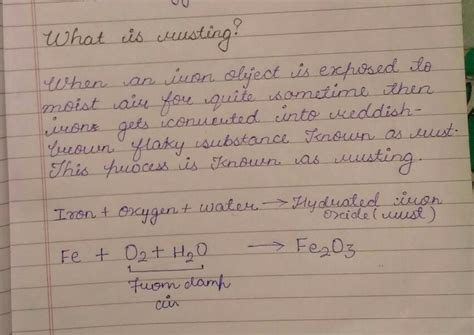 What is rusting?
When an iron object is exposed to
moist air for quite sometime then
irons gets converted into reddish-
brown flaky substance known as rust.
This process is known as rusting.
Iron + oxygen + water → Hydrated iron
oxide (rust)
Fe + O2 + H2O → Fe2O3
From damp
air